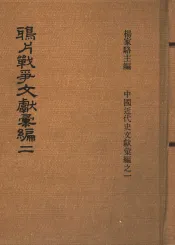 楊家駱主編
中國近代史文獻彙編之一
鴉片戰爭文獻彙編二